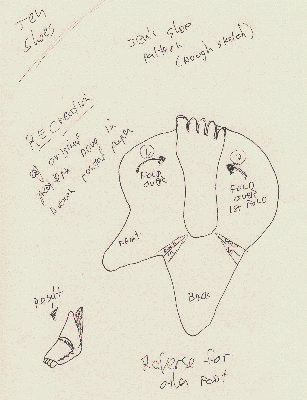 Shoes
Jedi shoe
pattern
(rough sketch)
RECREATION
of original
done in
brown postal paper
1
FOLD
OVER
2
FOLD
OVER
1st FOLD
Front
Back
result
Reverse for
other foot